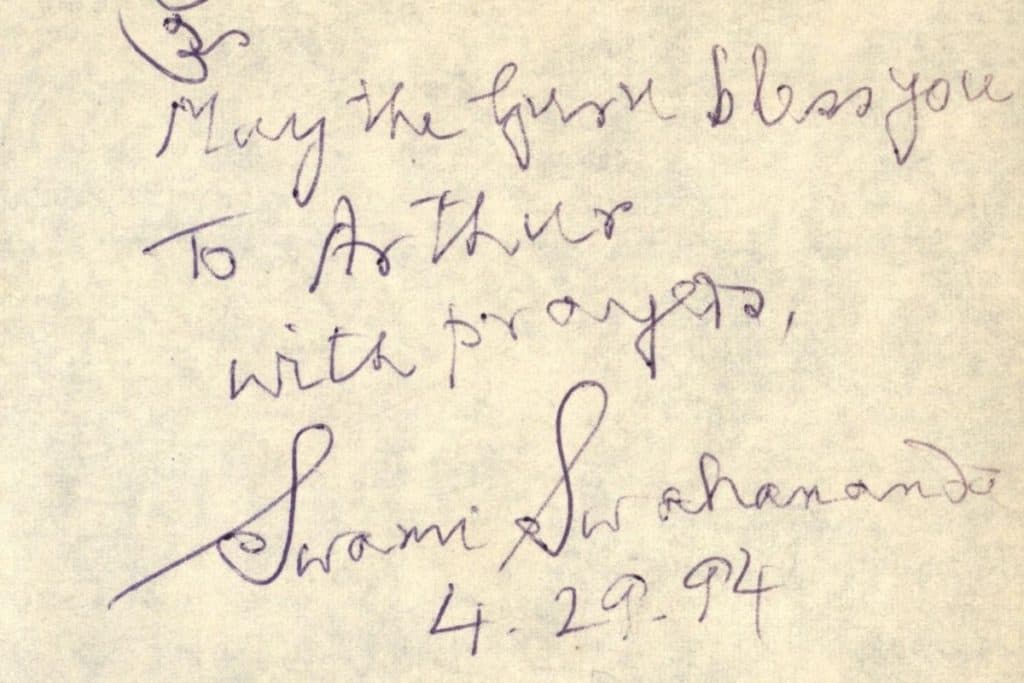 May the Guru bless you
To Arthur
with prayers,
Swami Swahananda
4.29.94